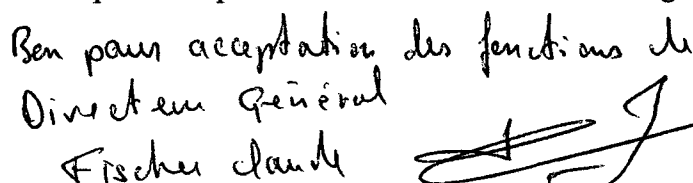 Bon pour acceptation des fonctions de
Directeur Général
Fischer Claude